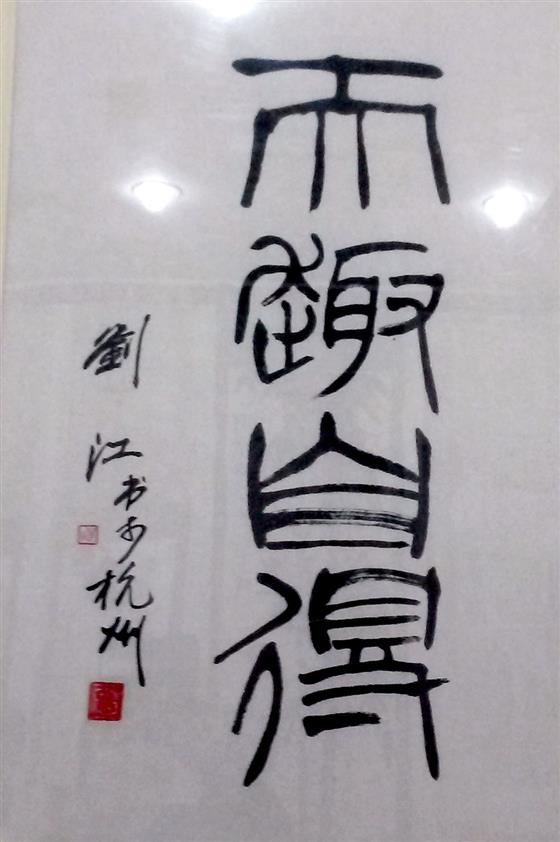 天趣自得
劉江书于杭州